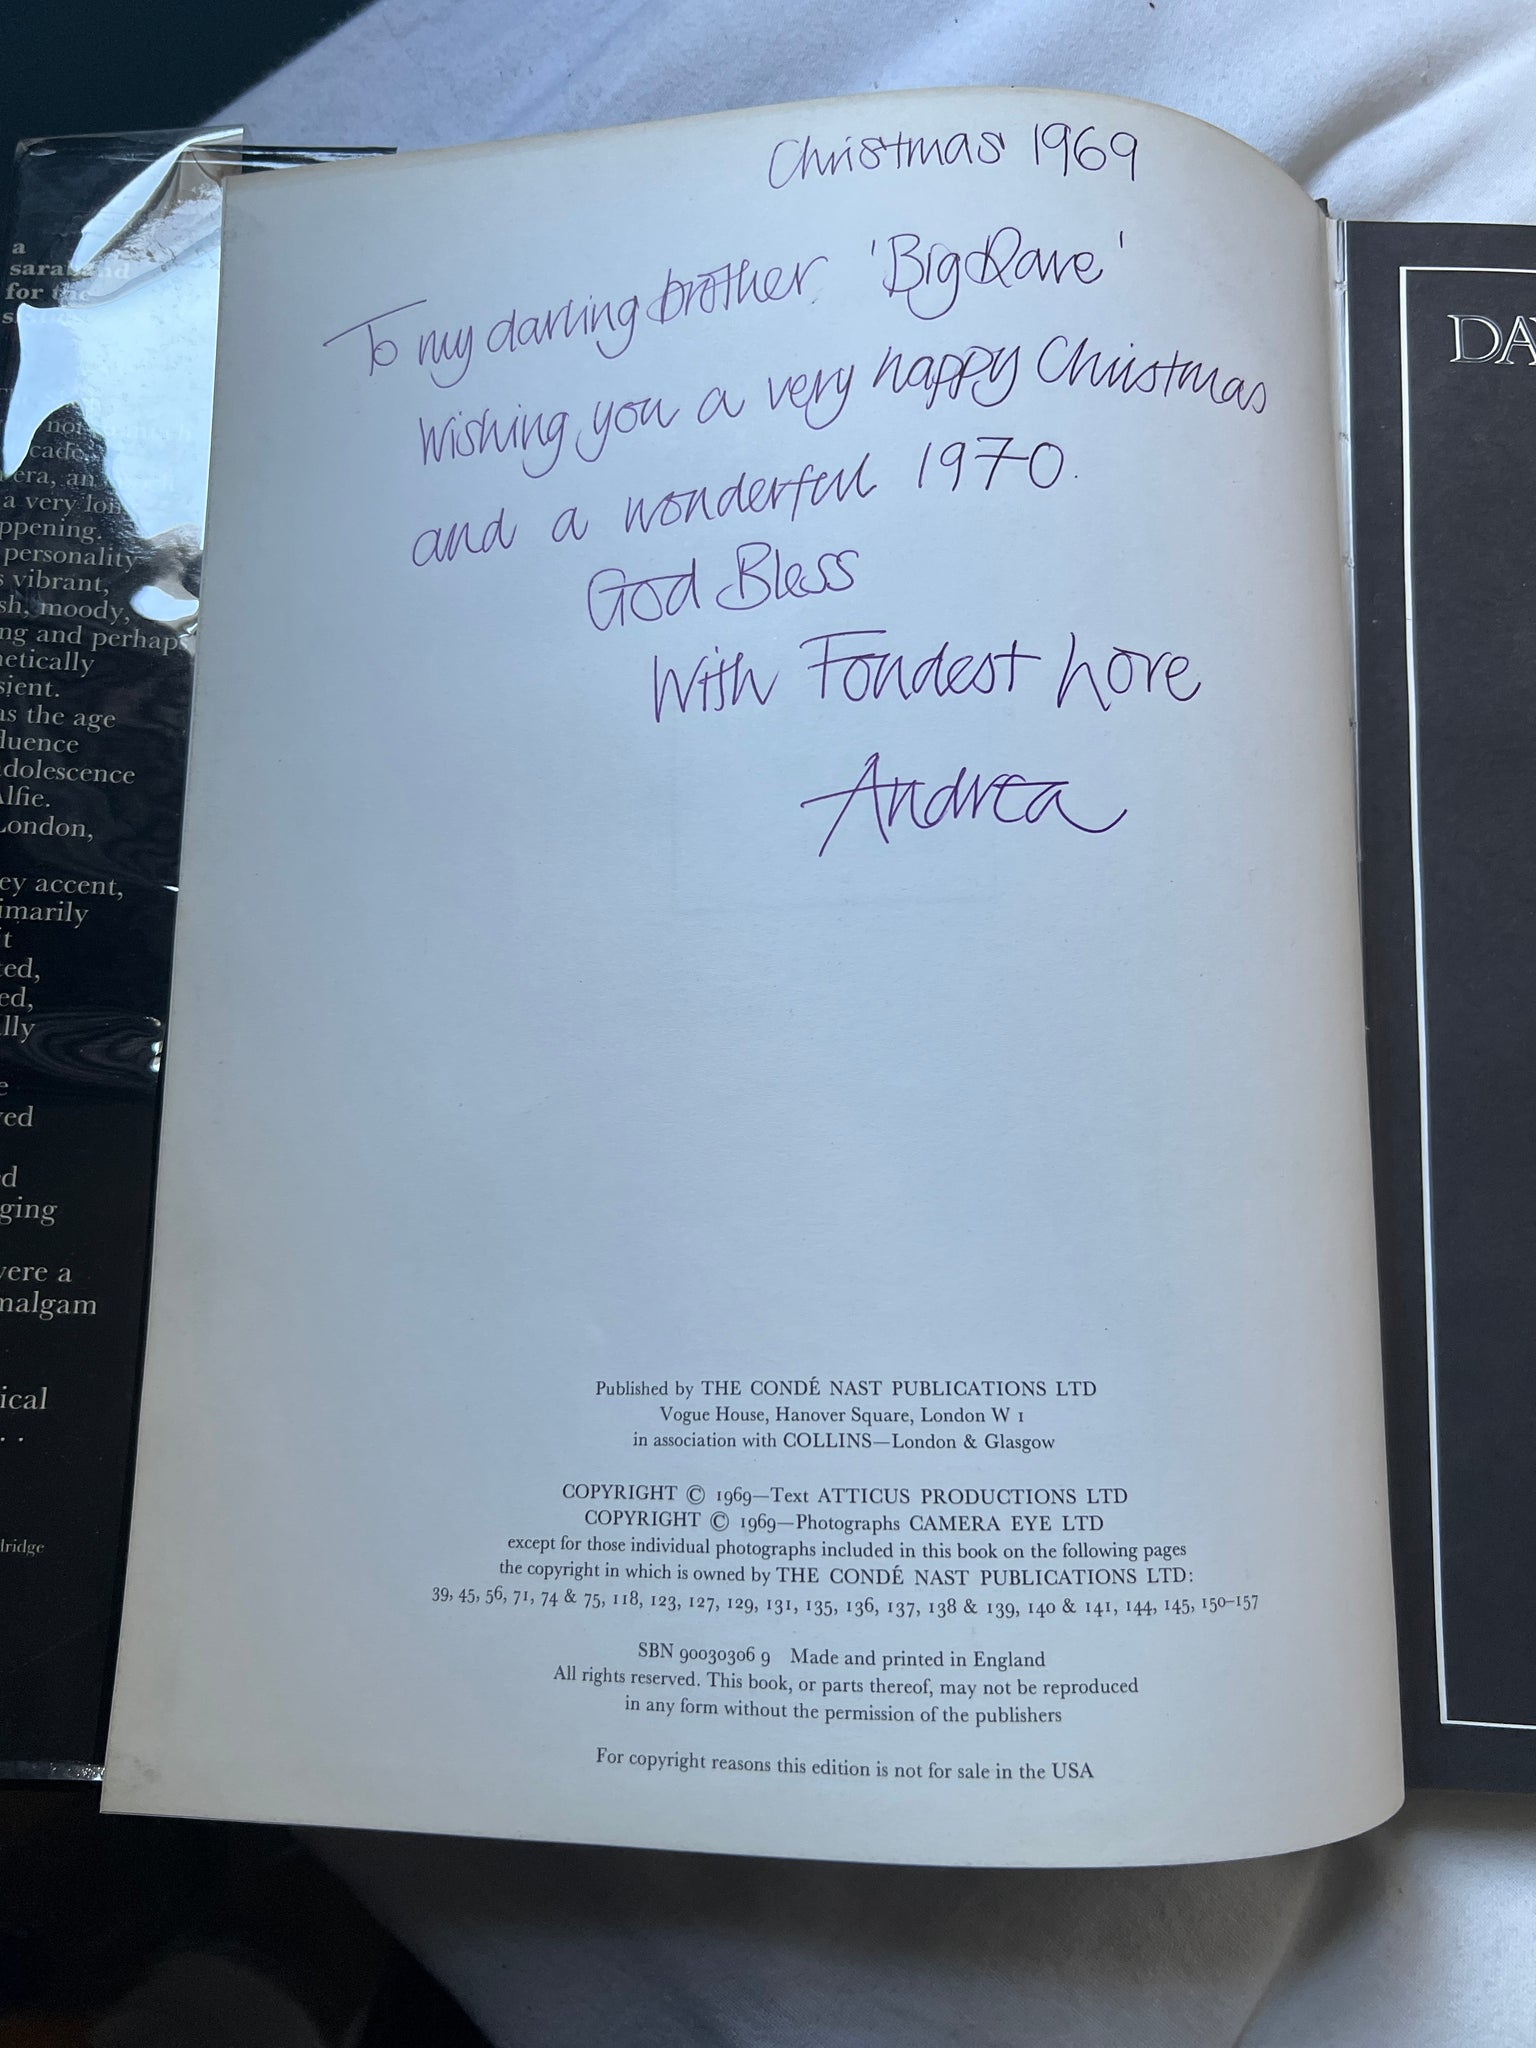 Christmas 1969
To my darling brother 'Big Dave'
Wishing you a very happy Christmas
and a wonderful 1970.
God Bless
With Fondest Love
Andrea
Published by THE CONDÉ NAST PUBLICATIONS LTD
Vogue House, Hanover Square, London W 1
in association with COLLINS—London & Glasgow
COPYRIGHT © 1969—Text ATTICUS PRODUCTIONS LTD
COPYRIGHT © 1969—Photographs CAMERA EYE LTD
except for those individual photographs included in this book on the following pages
the copyright in which is owned by THE CONDÉ NAST PUBLICATIONS LTD:
39, 45, 56, 71, 74 & 75, 118, 123, 127, 129, 131, 135, 136, 137, 138 & 139, 140 & 141, 144, 145, 150–157
SBN 90030306 9 Made and printed in England
All rights reserved. This book, or parts thereof, may not be reproduced
in any form without the permission of the publishers
For copyright reasons this edition is not for sale in the USA
a
for the
a very
ppening.
personality
vibrant,
moody,
and perhap
as the age
London,
accent,
were a
DA